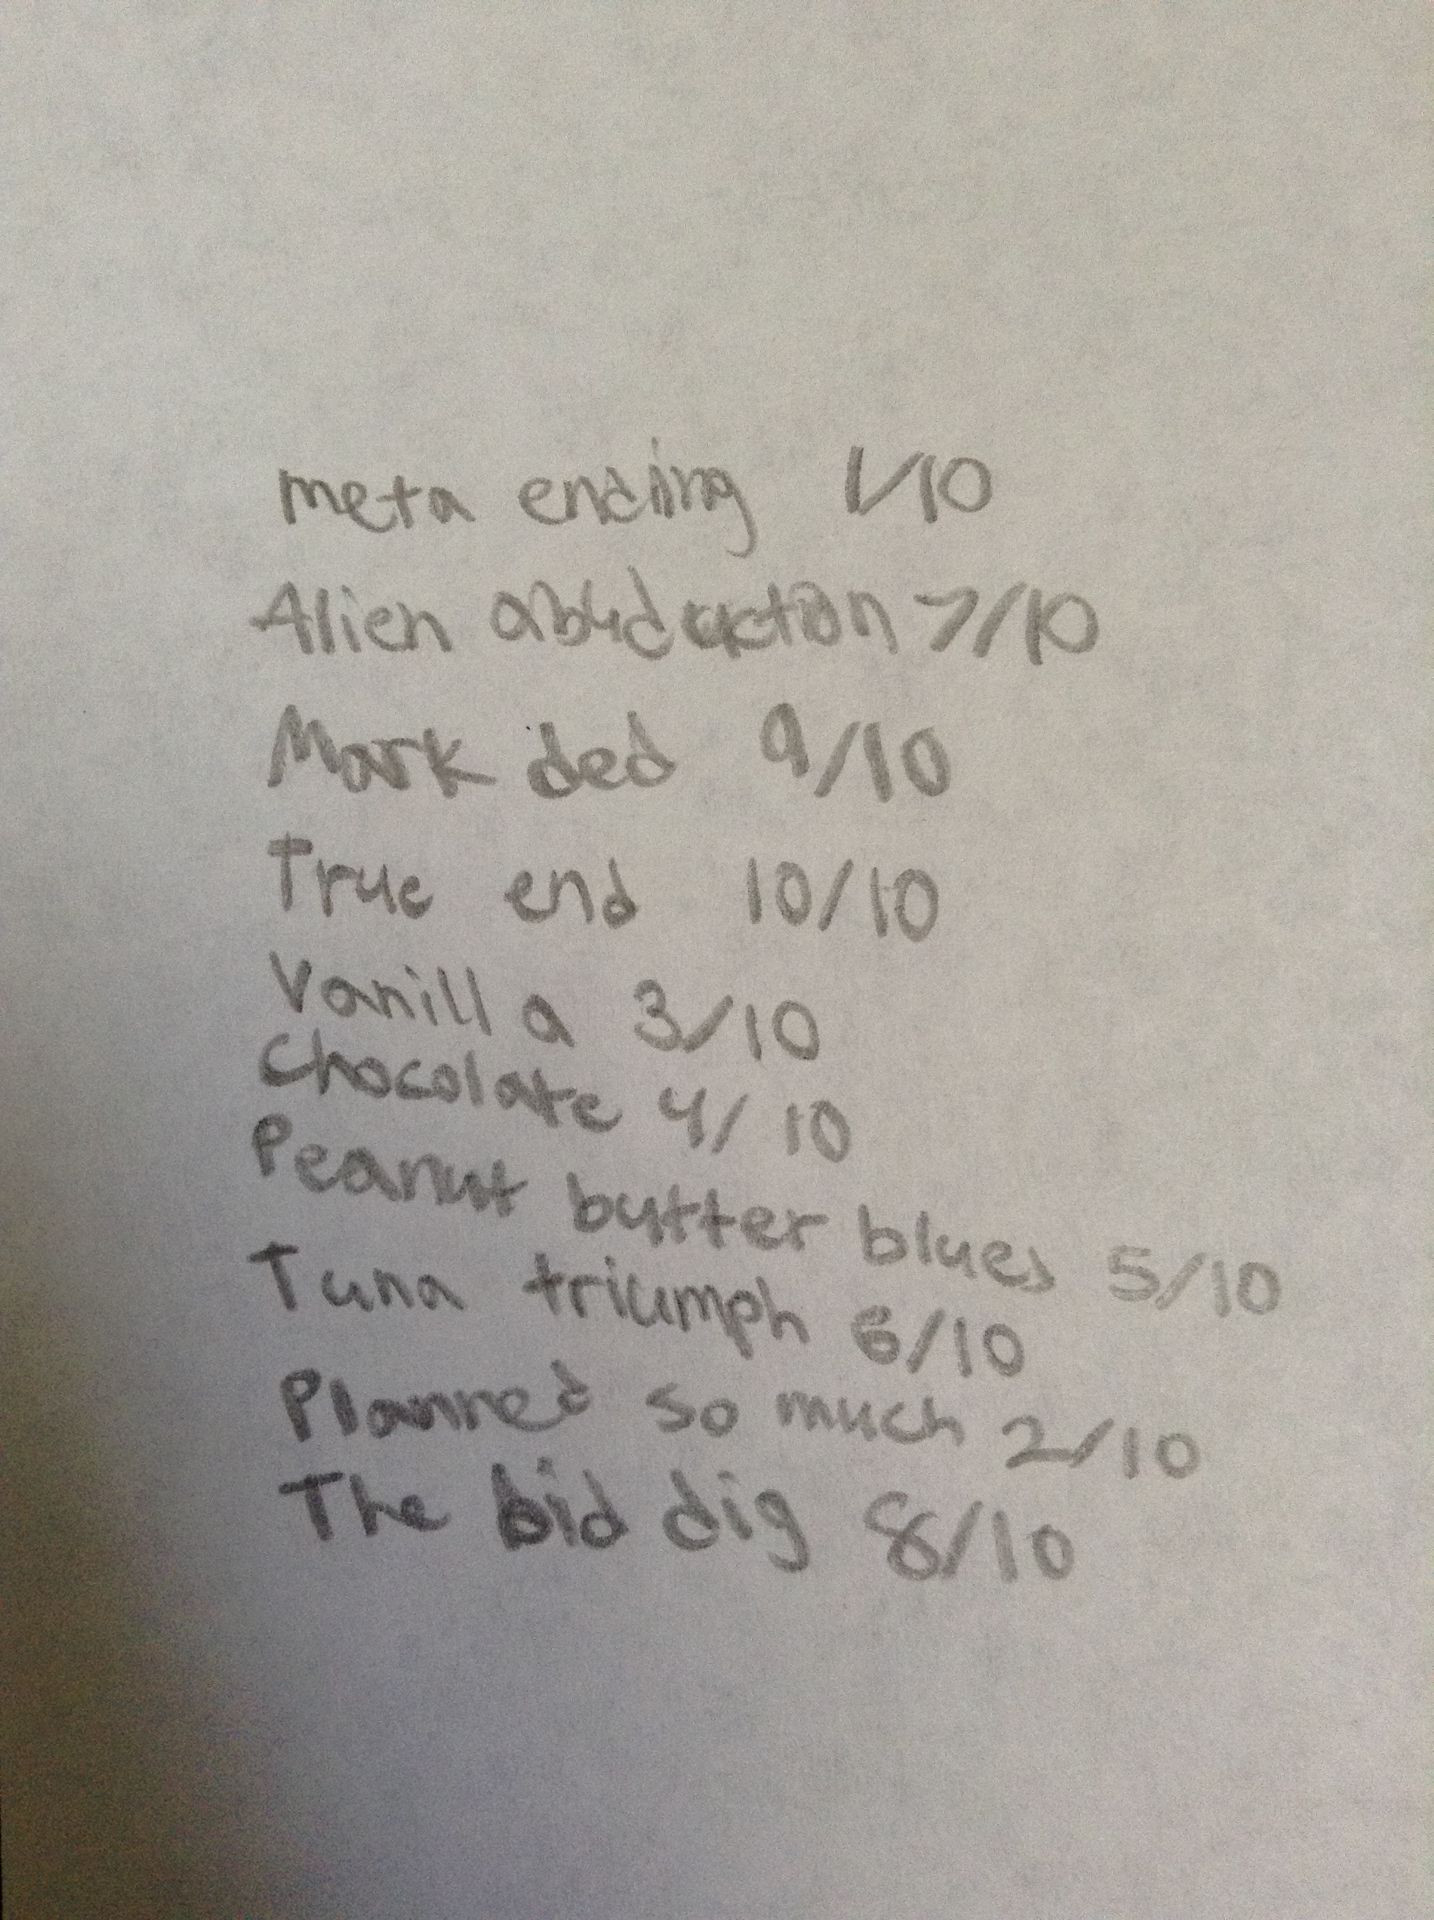 meta ending 1/10
Alien abduction 7/10
Mark ded 9/10
True end 10/10
Vanilla 3/10
Chocolate 4/10
Peanut butter blues 5/10
Tuna triumph 6/10
Planned so much 2/10
The bid dig 8/10